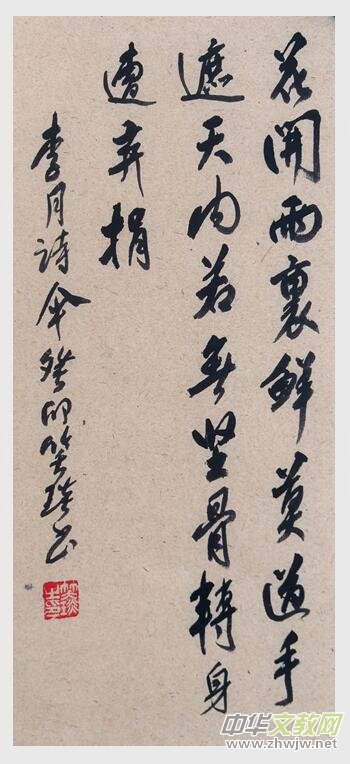 花開雨裏鮮莫道手
遮天内若無坚骨轉身
遭弃捐
李月詩伞癸卯笑书
中华文教网
www.zhwjw.net